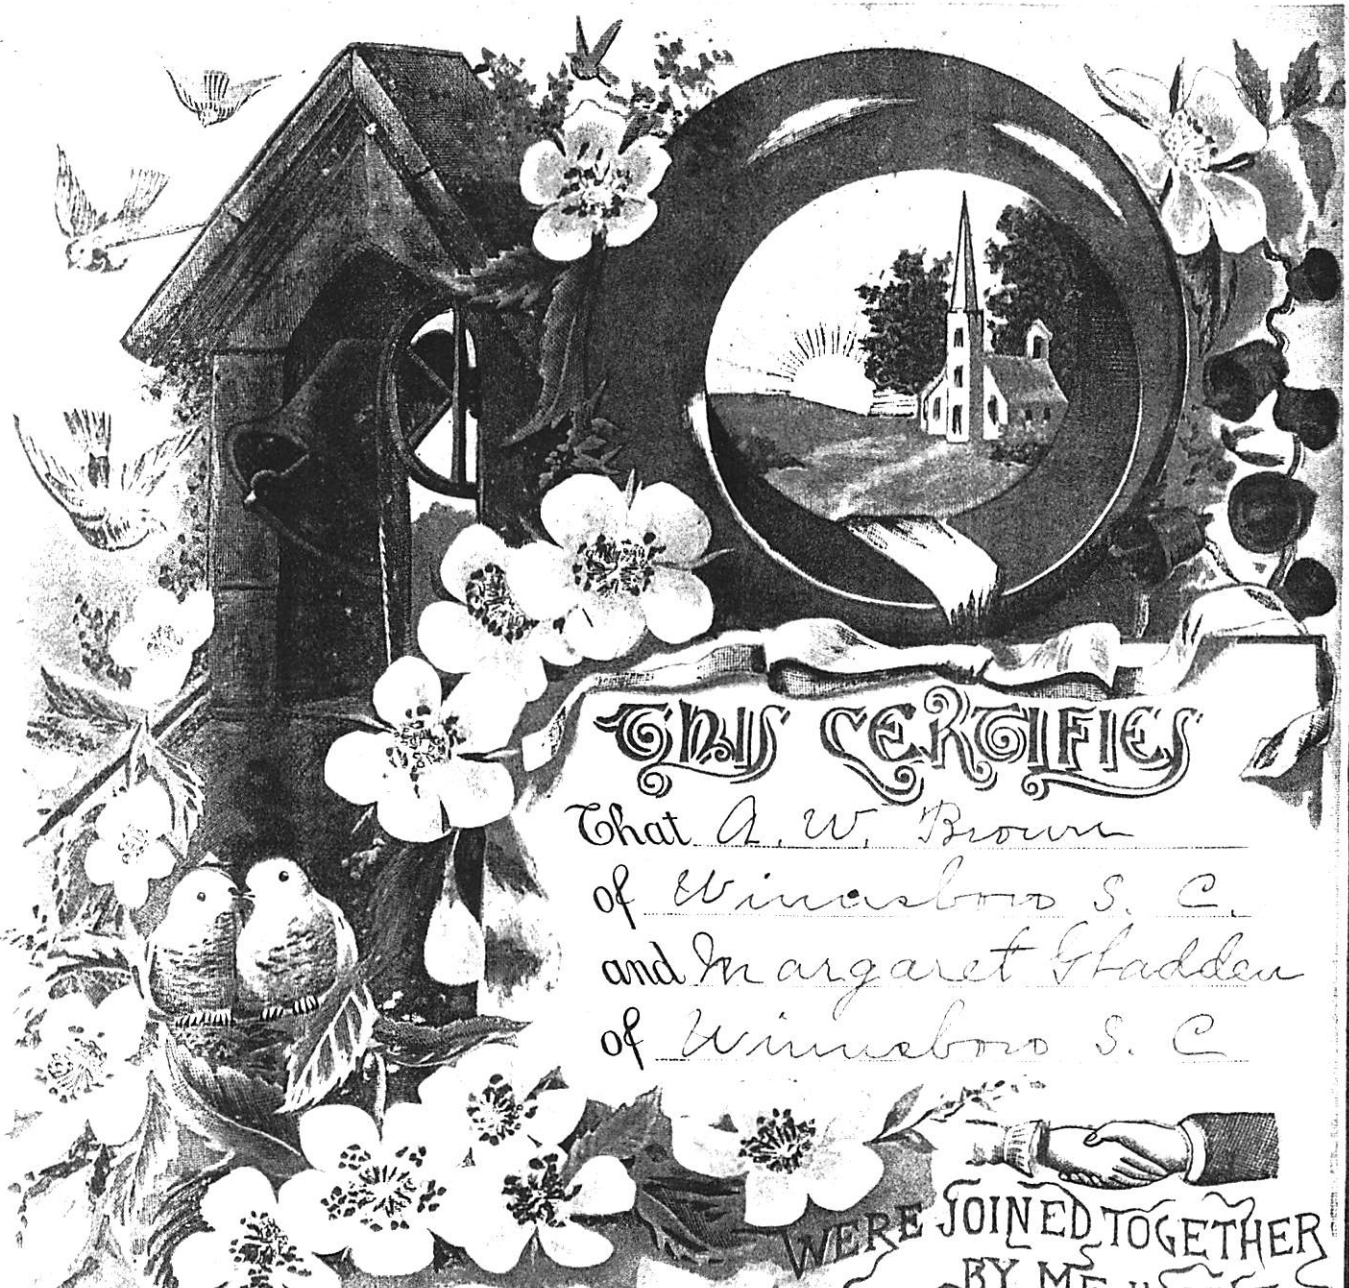 THIS CERTIFIES
That A. W. Brown
of Winnsboro S. C.
and Margaret Gladden
of Winnsboro S. C
WERE JOINED TOGETHER
BY ME